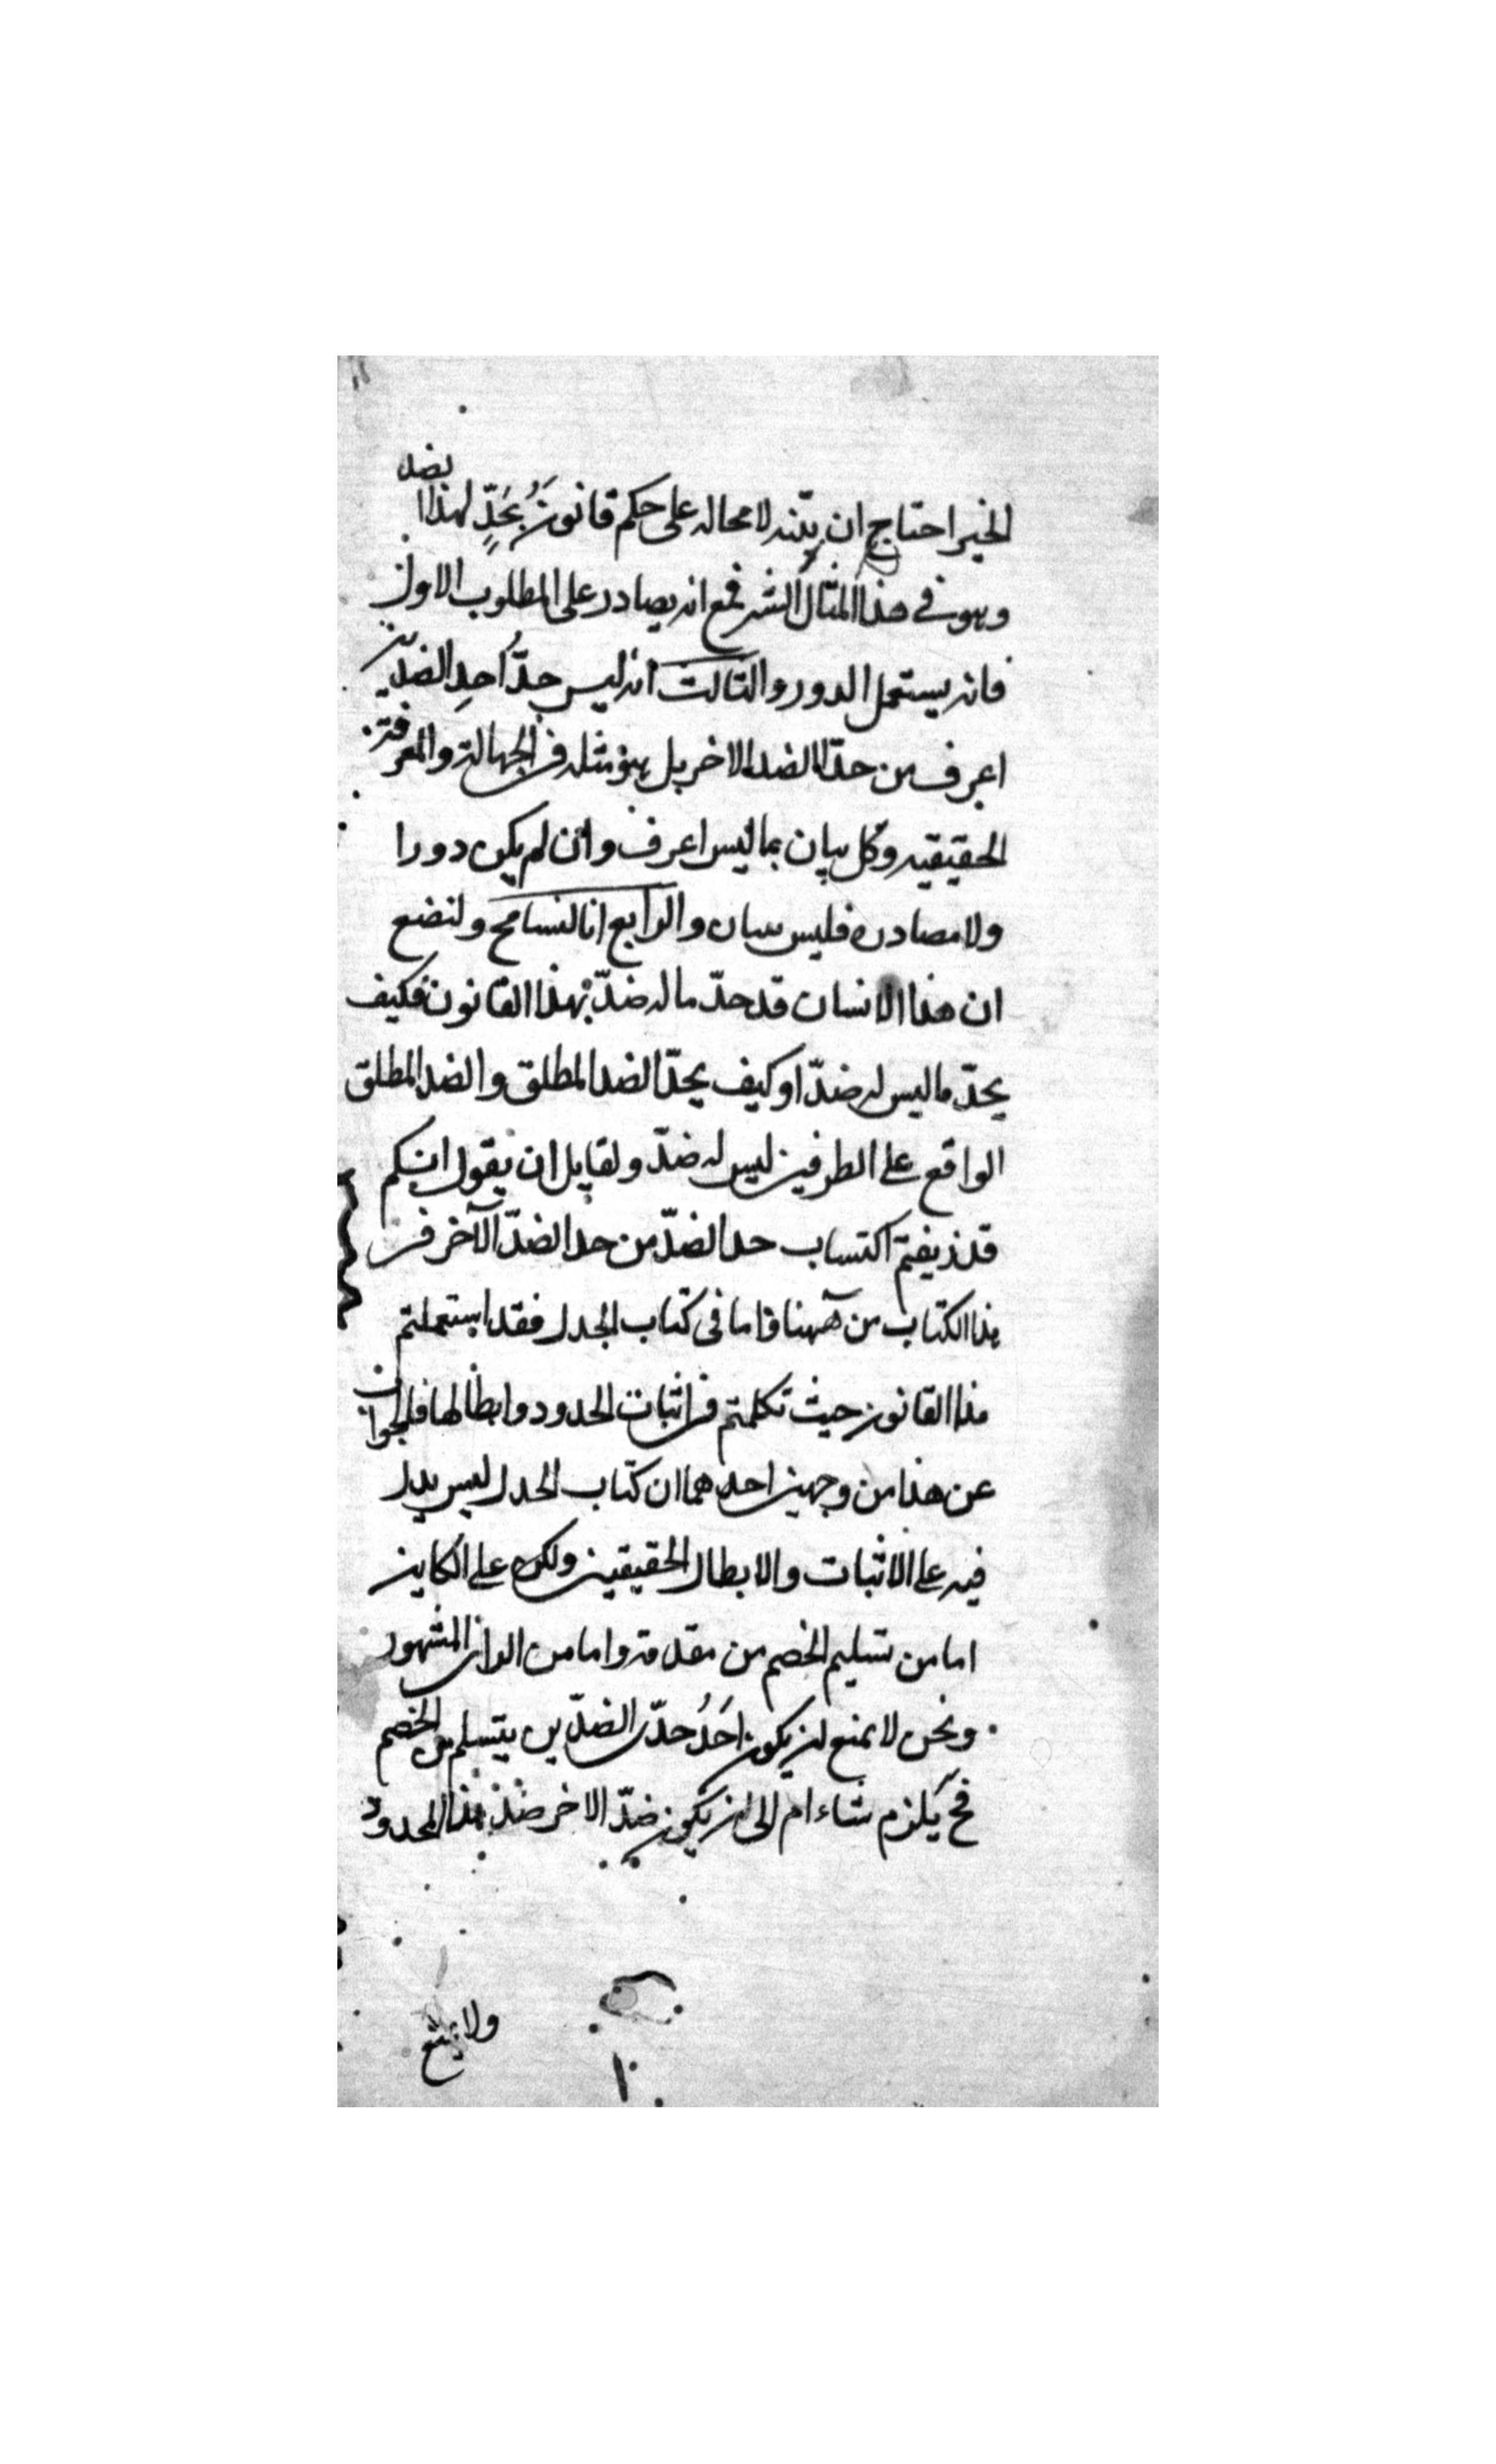 الخير احتاج ان يبينه لا محاله على حكم قانونه بحدٍّ لهذا الضد
وهو في هذا المثال الشر فمع انه يصادر على المطلوب الاول
فانه يستعمل الدور والثالث انه ليس حدُّ احدِ الضدين
اعرف من حدّ الضد الاخر بل هو مثله في الجهالة والمعرفة
الحقيقيه وكل بيان بما ليس اعرف وان لم يكن دورا
ولا مصادره فليس ببيان والرابع انا لنسامح ولنضع
ان هذا الانسان قد حدّ ما له ضدّ بهذا القانون فكيف
يحدّ ما ليس له ضدّ او كيف يحدّ الضد المطلق والضد المطلق
الواقع على الطرفين ليس له ضدّ ولقايل ان يقول انكم
قد زيفتم اكتساب حد الضدّ من حد الضدّ الآخر في
هذا الكتاب من ههنا واما في كتاب الجدل فقد استعملتم
هذا القانون حيث تكلمتم في اثبات الحدود وابطالها فالجواب
عن هذا من وجهين احدهما ان كتاب الجدل ليس يدل
فيه على الاثبات والابطال الحقيقيين ولكن على الكاين
اما من تسليم الخصم من مقدمة واما من الراي المشهور
ونحن لا نمنع ان يكون احَدُ حدّي الضدّين يتسلم من الخصم
فح يلزم شاء ام ابى ان يكون ضدّ الاخر ضد هذا المحدود
ولا يمنع